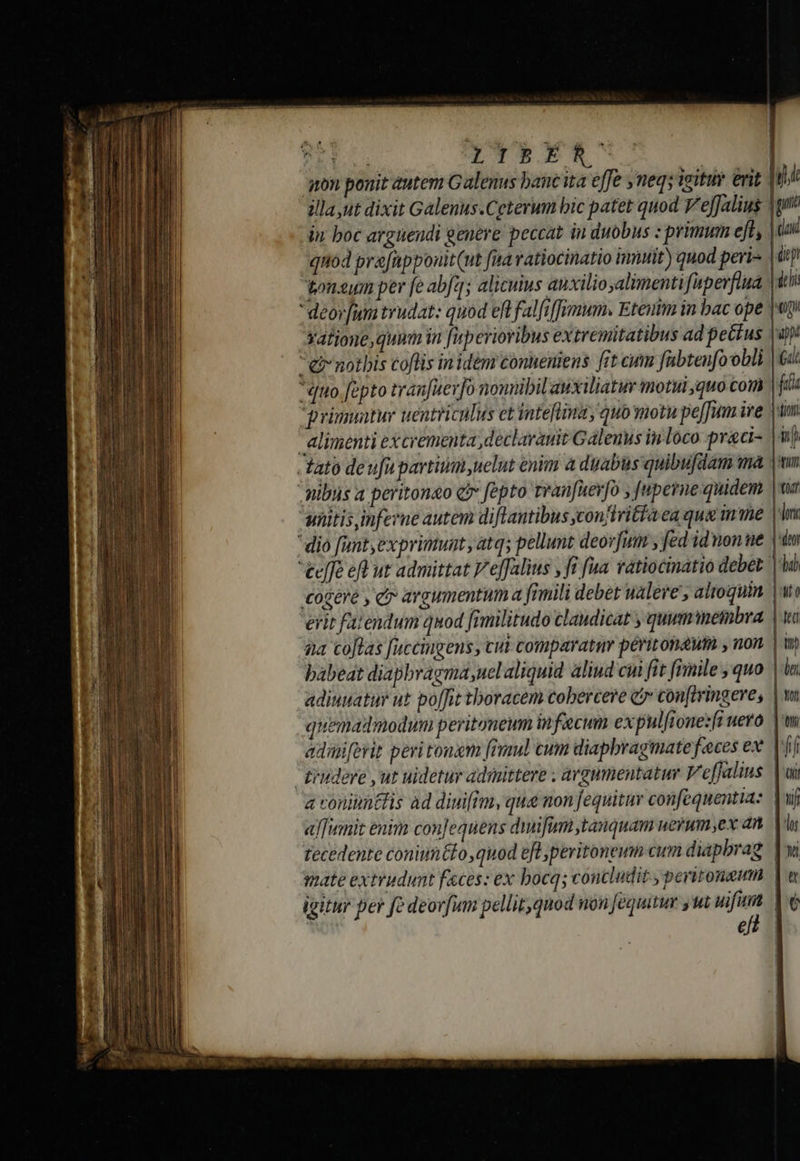 LIBER
non ponit autem Galenus hanc ita esse, neq; igitur erit
illa, ut dixit Galenus. Cęterum hic patet quod Vessalius
in hoc arguendi genere peccat in duobus : primum est,
quod præsupponit (ut sua ratiocinatio innuit) quod peri-
tonæum per se absq; alicuius auxilio, alimenti superflua
deorsum trudat: quod est falsissimum. Etenim in hac ope
ratione, quum in superioribus extremitatibus ad pectus
& nothis costis in idem conueniens sit cum subtenso obli
quo septo transuerso nonnihil auxiliatur motui, quo com
primuntur uentriculus et intestina, quo motu pessum ire
alimenti excrementa, declarauit Galenus in loco præci-
tato de usu partium, uelut enim a duabus quibusdam ma
nibus a peritonæo & septo transuerso, superne quidem
unitis, inferne autem distantibus, constricta ea quæ in me
dio sunt, exprimunt, atq; pellunt deorsum, sed id non ne
cesse est ut admittat Vessalius, si sua ratiocinatio debet
cogere, & argumentum a simili debet ualere, alioquin
erit fatendum quod similitudo claudicat, quum membra
na costas succingens, cui comparatur peritonæum, non
habeat diaphragma, uel aliquid aliud cui sit simile, quo
adiuuatur ut possit thoracem cohercere & constringere,
quemadmodum peritoneum in fæcum expulsione: si uero
admiserit peritonæm simul cum diaphragmate fæces ex
trudere, ut uidetur admittere. argumentatur Vessalius
a coniunctis ad diuisim, quæ non sequitur consequentia:
assumit enim consequens diuisum, tanquam uerum, ex an
tecedente coniuncto, quod est, peritoneum cum diaphrag
mate extrudunt fæces: ex hocq; concludit, peritonæum
igitur per se deorsum pellit, quod non sequitur, ut uisum
est